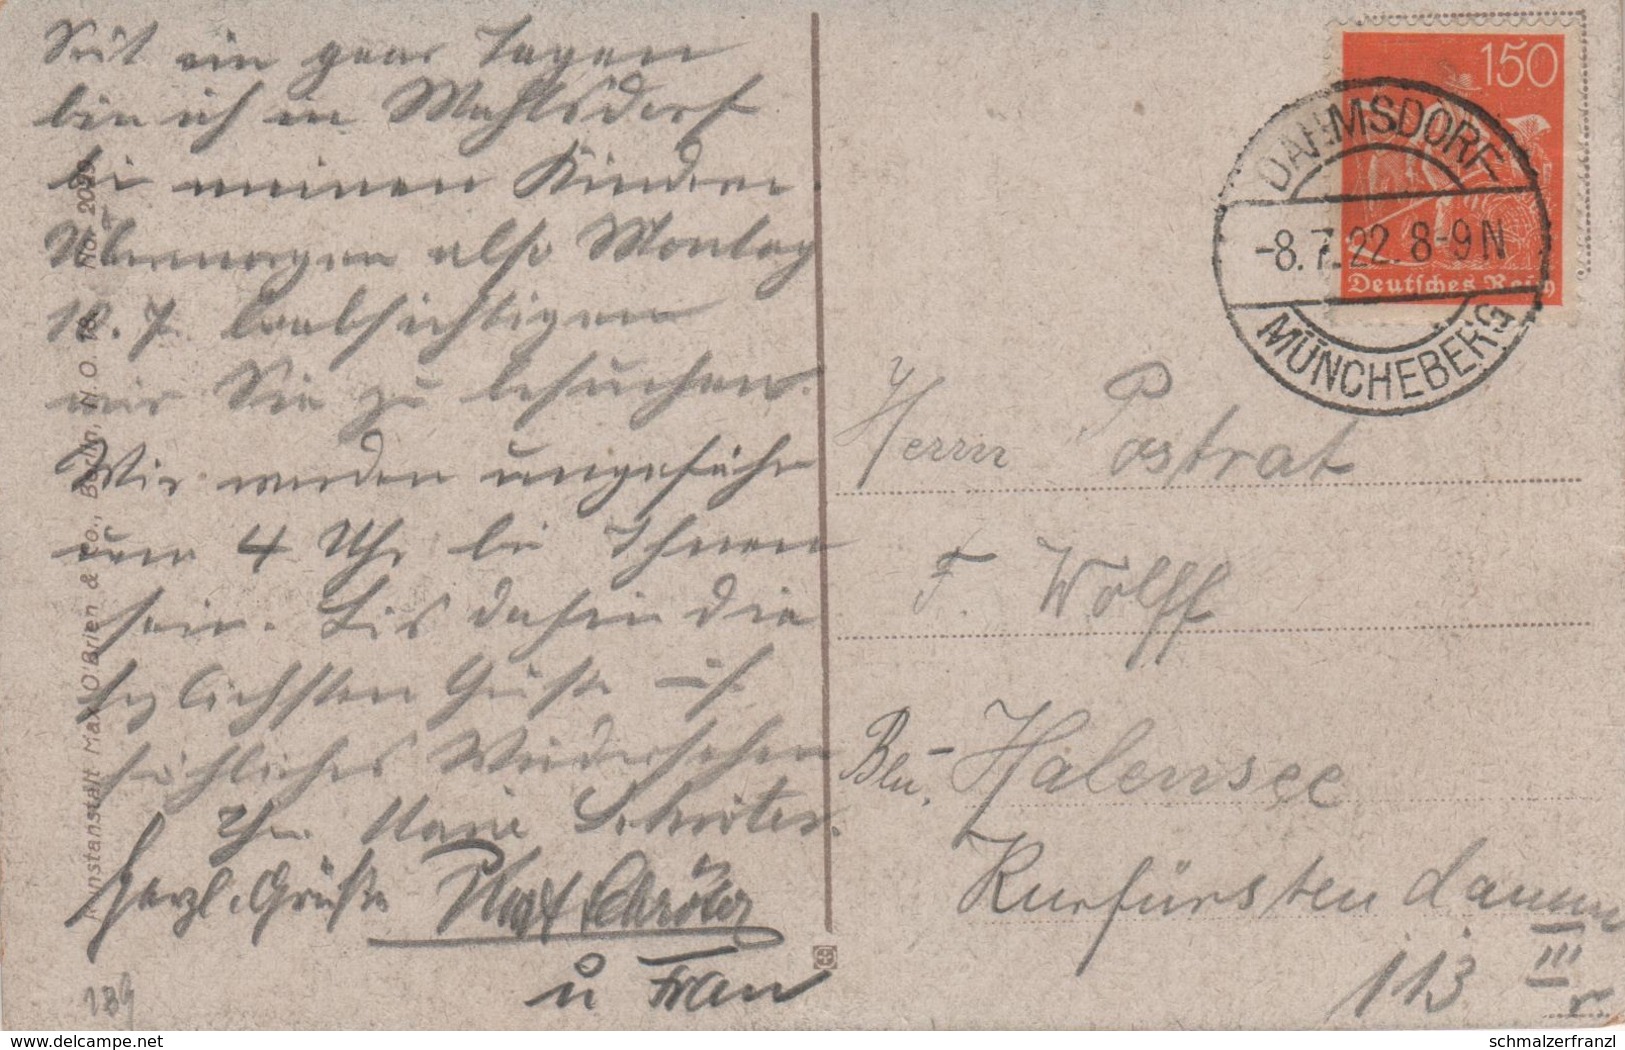 Seit ein paar Tagen
bin ich in Mahlsdorf
bei meinen Kindern.
Übermorgen also Montag
10. 7. beabsichtigen
wir Sie zu besuchen.
Wir werden ungefähr
um 4 Uhr bei Ihnen
sein. Bis dahin die
herzlichsten Grüße u. auf
fröhliches Wiedersehen
Ihre Marie Schröter.
Herzl. Grüße Schröter
u Frau
189
Kunstanstalt Max O'Brien & Co., Berlin, N. O. 18. No. 2099
150
Deutsches Reich
DAHMSDORF
-8.7.22.8-9N
MÜNCHEBERG
Herrn Postrat
F. Wolff
Bln. - Halensee
Kurfürstendamm
113 III
r
© schmalzerfranzl
www.delcampe.net